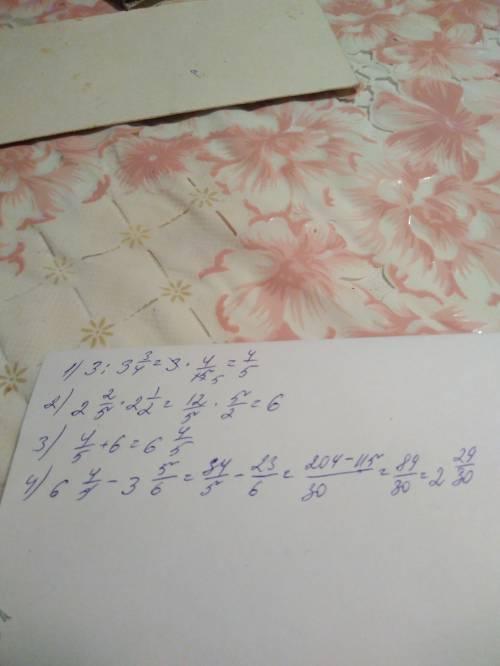 1) 3 : 3 3/4 = 3 · 4/15 5 = 4/5
2) 2 2/5 · 2 1/2 = 12/5 · 5/2 = 6
3) 4/5 + 6 = 6 4/5
4) 6 4/5 - 3 5/6 = 34/5 - 23/6 = 204-115/30 = 89/30 = 2 29/30